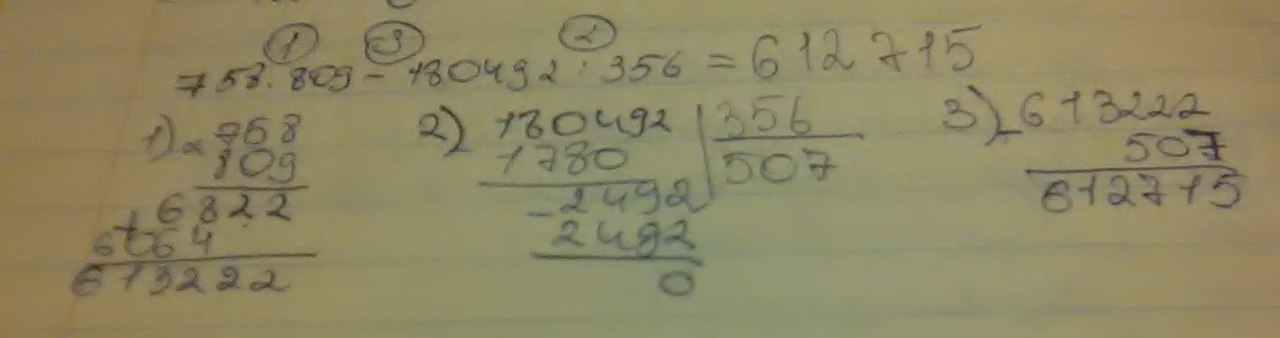 ① ③ ②
758 · 809 - 180492 : 356 = 612 715
1) × 758
809
6822
+
6064
613222
2) 180492 | 356
1780 507
- 2492
2492
0
3) - 613222
507
612715